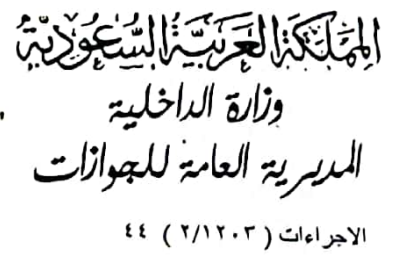 المملكة العربية السعودية
وزارة الداخلية
المديرية العامة للجوازات
الاجراءات ( ٢/١٢٠٣ ) ٤٤